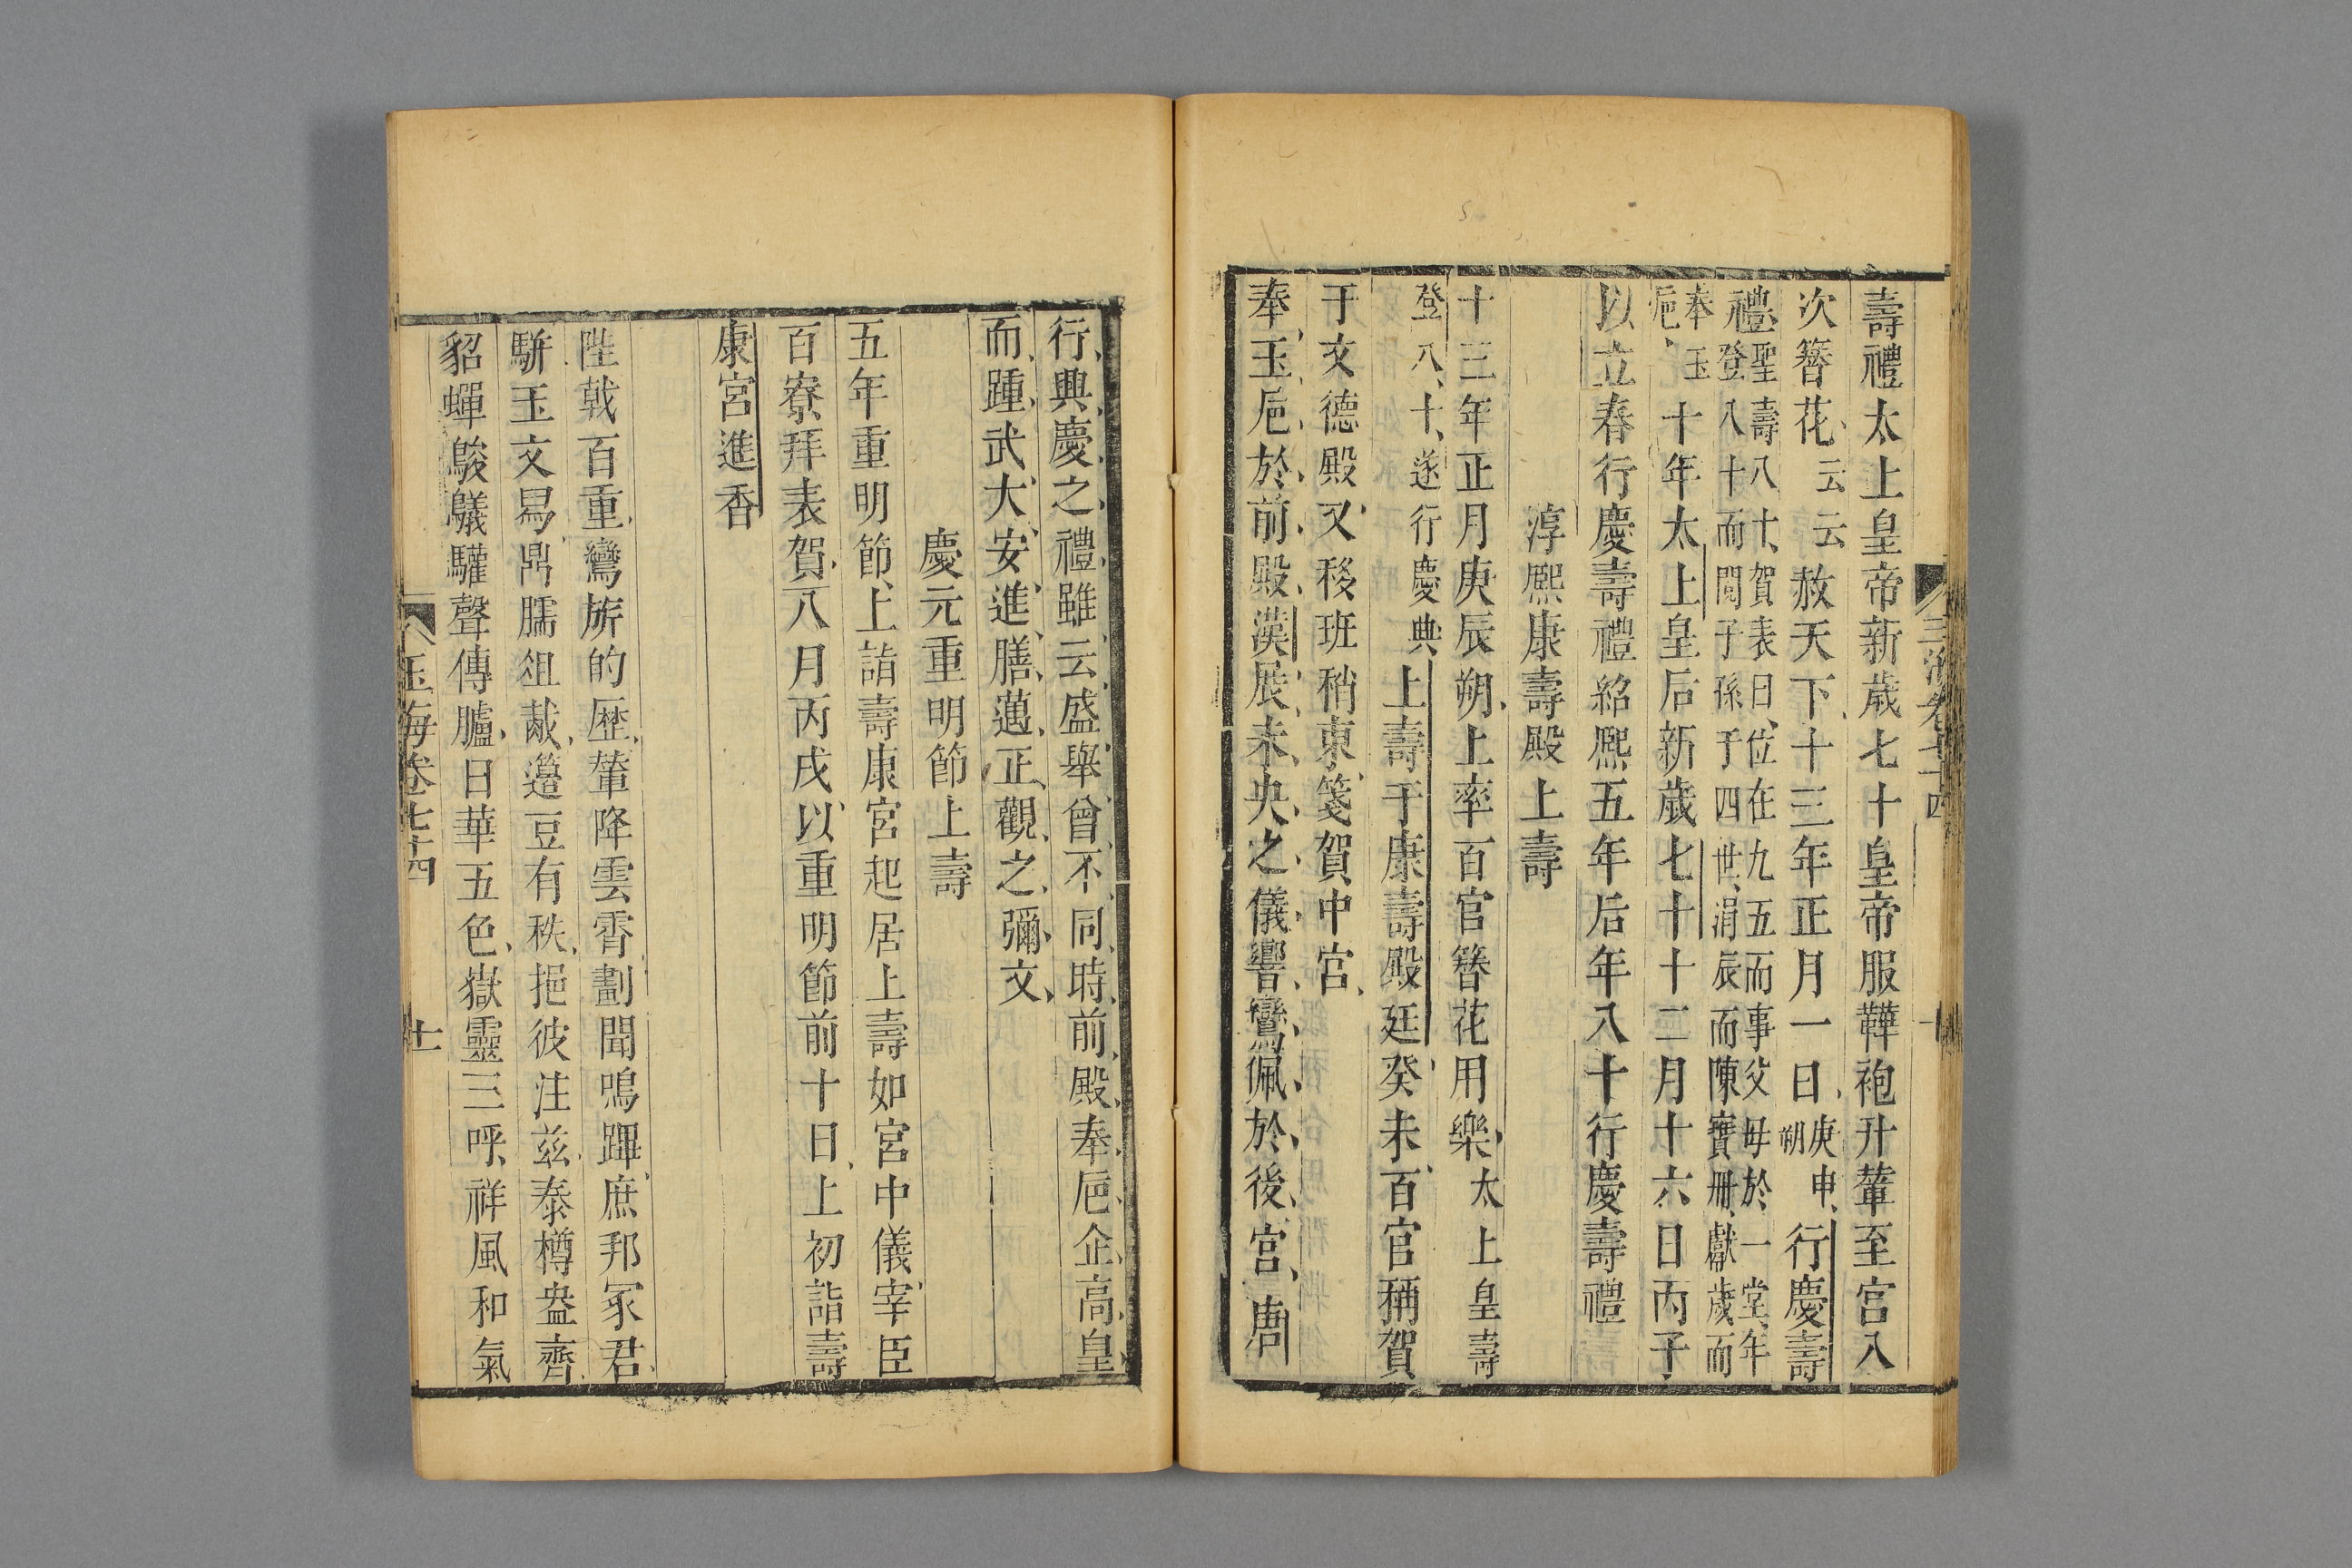 壽禮太上皇帝新歲七十皇帝服鞾袍升輦至宮入
次簪花云云赦天下十三年正月一日庚申朔行慶壽
禮聖壽八十賀表曰位在九五而事父毋於一堂年登八十而閱子孫于四世涓辰而陳寶冊獻歲而
奉玉巵十年太上皇后新歲七十十二月十六日丙子
以立春行慶壽禮紹熈五年后年八十行慶壽禮
淳熈康壽殿上壽
十三年正月庚辰朔上率百官簪花用樂太上皇壽
登八十遂行慶典上壽于康壽殿廷癸未百官稱賀
于文德殿又移班稍東箋賀中宮
奉玉巵於前殿漢展未央之儀響鸞佩於後宮唐
行興慶之禮雖云盛舉曾不同時前殿奉巵企高皇
而踵武大安進膳邁正觀之彌文
慶元重明節上壽
五年重明節上詣壽康宮起居上壽如宮中儀宰臣
百寮拜表賀八月丙戌以重明節前十日上初詣壽
康宮進香
陛戟百重鸞旂的歷輦降雲霄劃聞鳴蹕庶邦冢君
駢玉交舄鼎臑俎胾籩豆有秩挹彼注兹泰樽盎齊
貂蟬鵔鸃驩聲傳臚日華五色嶽靈三呼祥風和氣
玉海卷七十四
十一